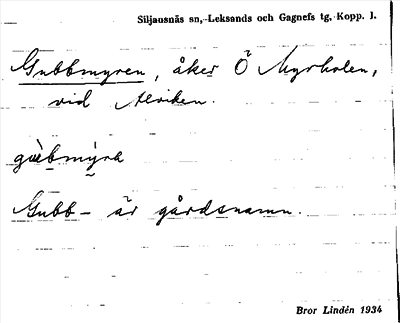 Siljansnäs sn, Leksands och Gagnefs tg, Kopp. l.
Gubbmyren, åker Ö Myrholen,
vid Alviken.
Gubb- är gårdsnamn.
Bror Lindén 1934